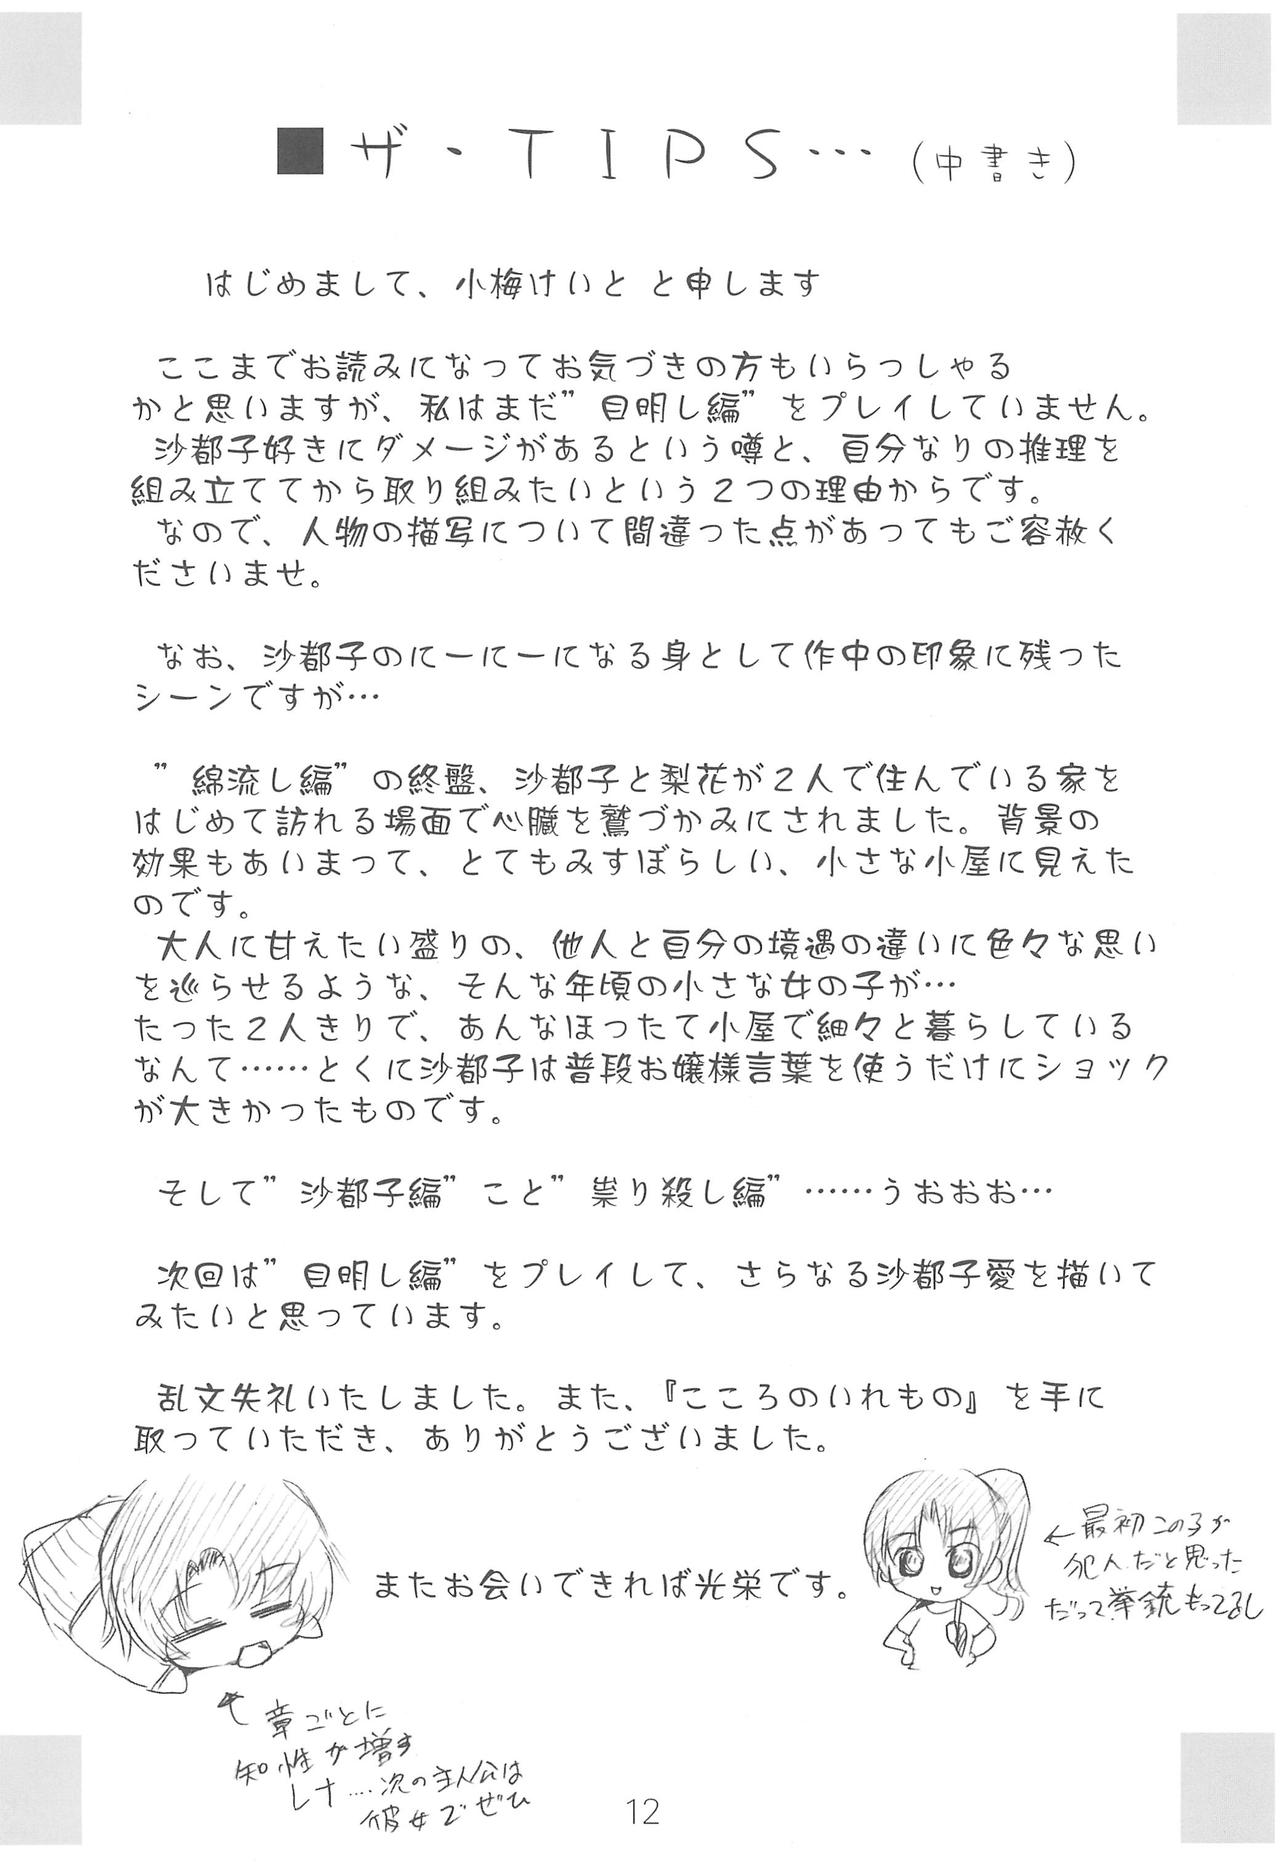 ■ザ・TIPS…（中書き）
はじめまして、小梅けいと と申します
ここまでお読みになってお気づきの方もいらっしゃる
かと思いますが、私はまだ”目明し編”をプレイしていません。
沙都子好きにダメージがあるという噂と、自分なりの推理を
組み立ててから取り組みたいという２つの理由からです。
なので、人物の描写について間違った点があってもご容赦く
ださいませ。
なお、沙都子のにーにーになる身として作中の印象に残った
シーンですが…
”綿流し編”の終盤、沙都子と梨花が２人で住んでいる家を
はじめて訪れる場面で心臓を鷲づかみにされました。背景の
効果もあいまって、とてもみすぼらしい、小さな小屋に見えた
のです。
大人に甘えたい盛りの、他人と自分の境遇の違いに色々な思い
を巡らせるような、そんな年頃の小さな女の子が…
たった２人きりで、あんなほったて小屋で細々と暮らしている
なんて……とくに沙都子は普段お嬢様言葉を使うだけにショック
が大きかったものです。
そして”沙都子編”こと”祟り殺し編”……うおおお…
次回は”目明し編”をプレイして、さらなる沙都子愛を描いて
みたいと思っています。
乱文失礼いたしました。また、『こころのいれもの』を手に
取っていただき、ありがとうございました。
またお会いできれば光栄です。
←最初この子が
犯人だと思った
だって拳銃もってるし
章ごとに
知性が増す
レナ….次の主人公は
彼女でぜひ
12